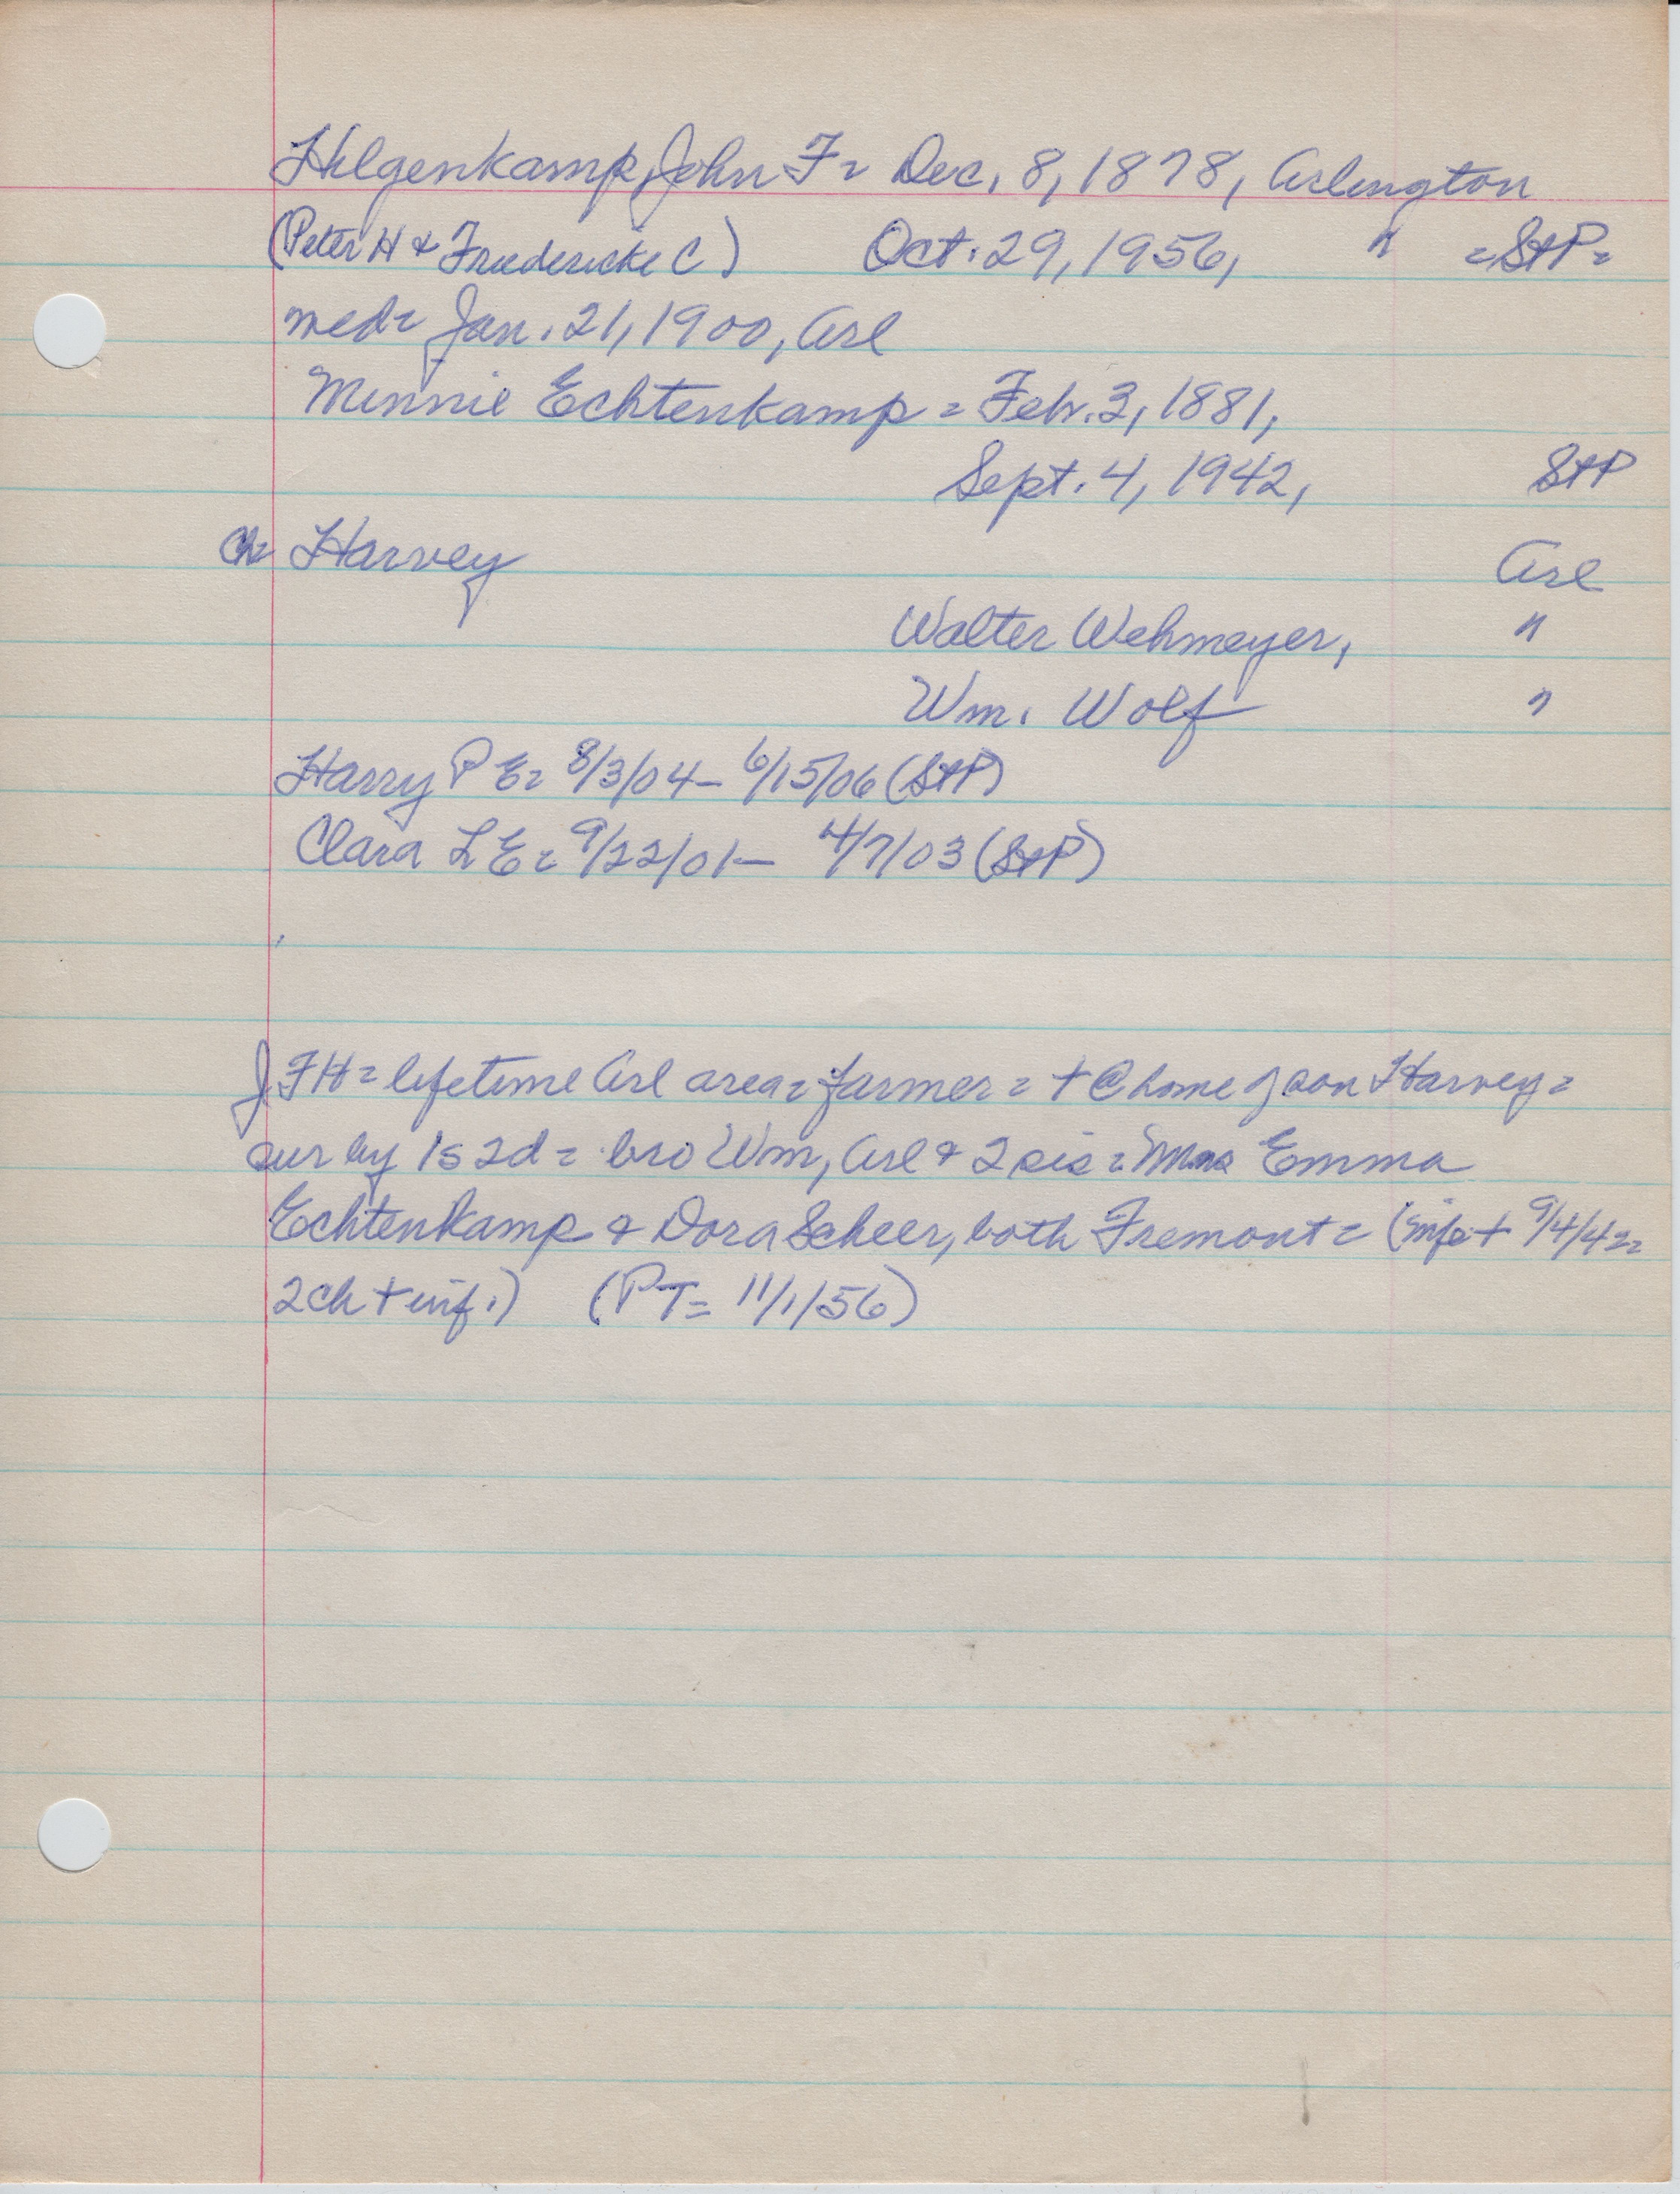 Hilgenkamp, John F = Dec. 8, 1878, Arlington
(Peter H & Friedericke C) Oct. 29, 1956, " = StP =
med = Jan. 21, 1900, Arl
Minnie Echtenkamp = Feb. 3, 1881,
Sept. 4, 1942, StP
Ch = Harvey Arl
Walter Wehmeyer, "
Wm. Wolf "
Harry P E = 8/3/04 - 6/15/06 (StP)
Clara L E = 9/22/01 - 4/7/03 (StP)
J FH = lifetime Arl area = farmer = + @ home of son Harvey =
sur by 1s 2d = bro Wm, Arl & 2 sis = Mrs Emma
Echtenkamp & Dora Scheer, both Fremont = ( + 9/4/42 =
2 ch + inf.) (PT = 11/1/56)